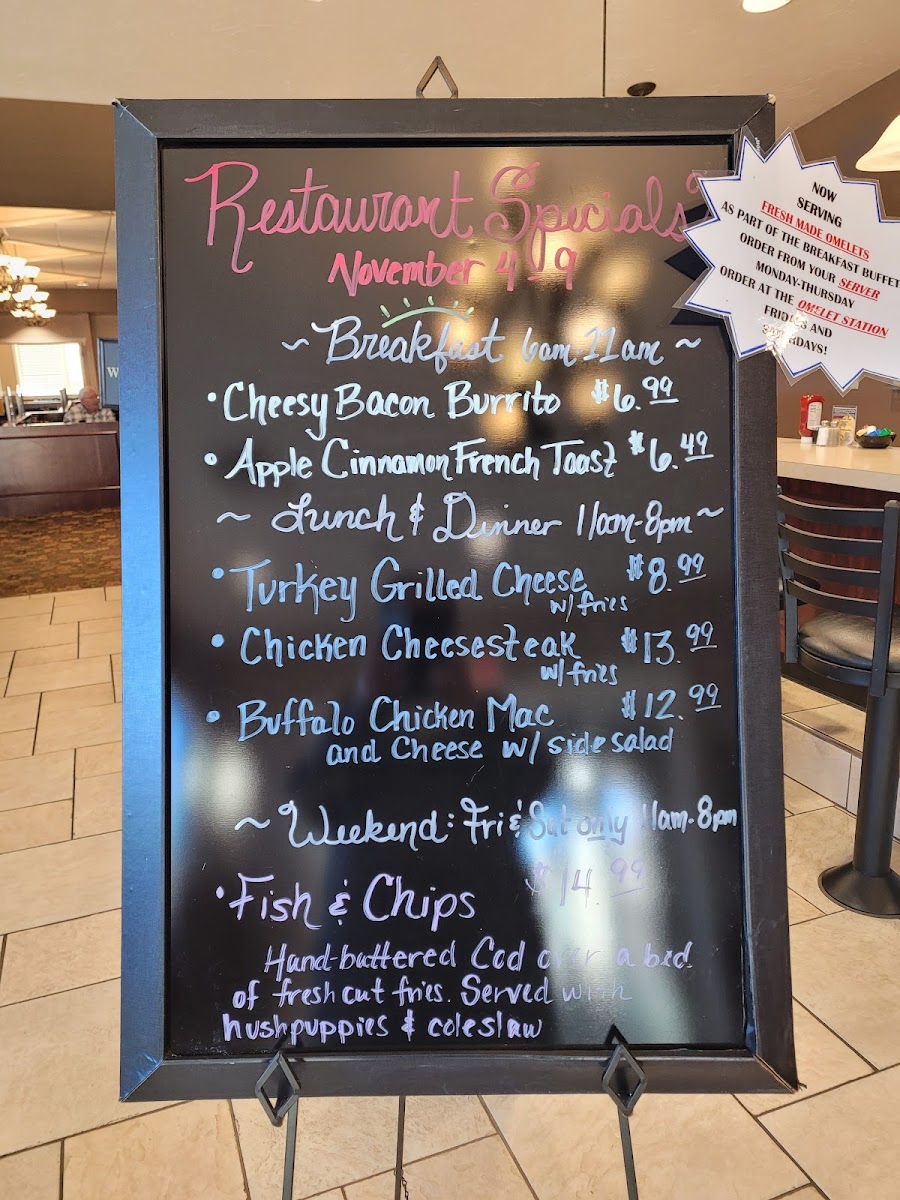 Restaurant Specials
November 4-9
~ Breakfast 6am-11am ~
• Cheesy Bacon Burrito $6.99
• Apple Cinnamon French Toast $6.49
~ Lunch & Dinner 11am-8pm ~
• Turkey Grilled Cheese $8.99
w/ fries
• Chicken Cheesesteak $13.99
w/ fries
• Buffalo Chicken Mac $12.99
and Cheese w/ side salad
~ Weekend: Fri & Sat only 11am-8pm
$14.99
• Fish & Chips
Hand-battered Cod over a bed
of fresh cut fries. Served with
hushpuppies & coleslaw
NOW
SERVING
FRESH MADE OMELETS
AS PART OF THE BREAKFAST BUFFET
ORDER FROM YOUR SERVER
MONDAY-THURSDAY
ORDER AT THE OMELET STATION
FRIDAYS AND
SATURDAYS!
W